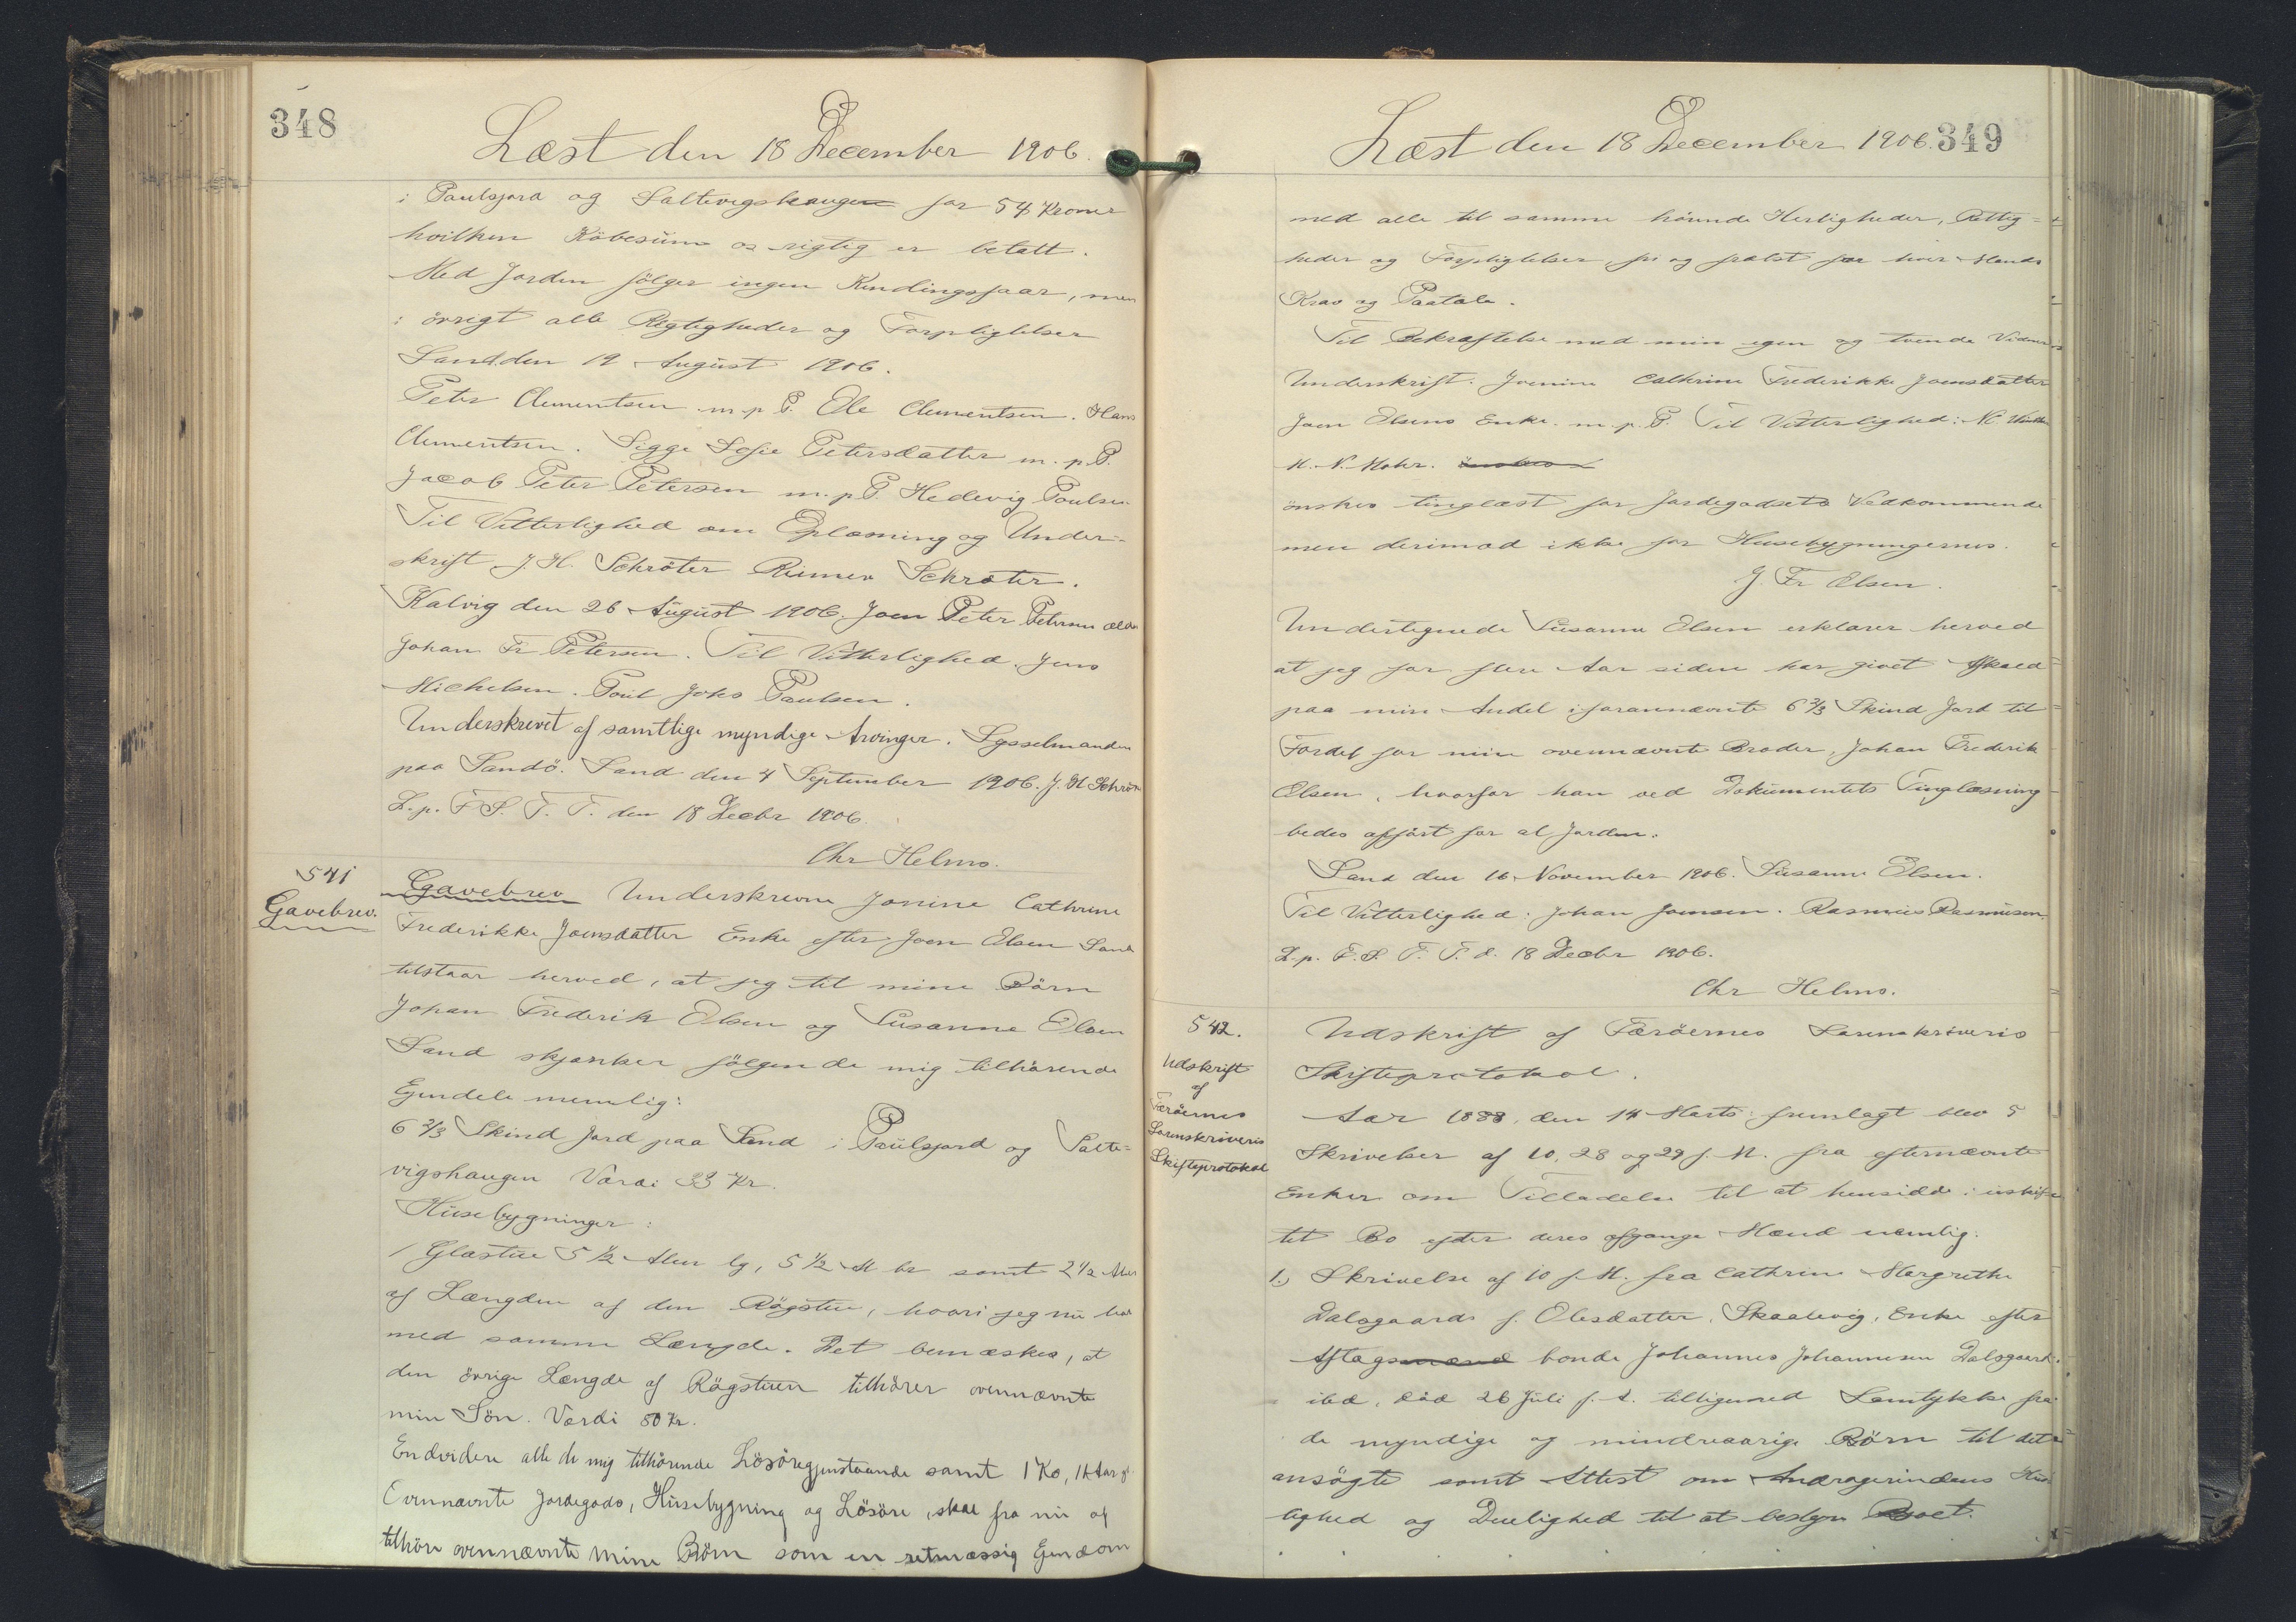 348
Læst den 18 December 1906.
i Paulsjord og Saltevigshaugen for 54 Kroner
hvilken Köbesum os rigtig er betalt.
Med Jorden fölger ingen Kundingsfaar, men
i övrigt alle Rigtigheder og Forpligtelser
Sand den 19 August 1906.
Peter Clementsen m.p.P. Ole Clementsen. Hans
Clementsen. Sigge Sofie Petersdatter m.p.P.
Jacob Peter Petersen m.p.P. Hedevig Poulsen
Til Vitterlighed om Oplæsning og Under-
skrift J. H. Schröter Rismer Schröter.
Kalvig den 26 August 1906. Joen Peter Petersen
Johan Fr Petersen. Til Vitterlighed. Jens
Michelsen. Poul Johs Paulsen.
Underskrevet af samtlige myndige Arvinger. Sysselmanden
paa Sandö. Sand den 4 September 1906. J. H Schröter
L.p. F S. T. T. den 18 Decbr 1906.
Chr Helms.
541
Gavebrev.
Gavebrev Underskrevne Jonine Cathrine
Frederikke Joensdatter Enke efter Joen Olsen Sand
tilstaar herved, at jeg til mine Börn
Johan Frederik Olsen og Susanne Olsen
Sand skjænker fölgende mig tilhörende
Ejendele nemlig:
6 2/3 Skind Jord paa Sand i Paulsjord og Salte-
vigshaugen Værdi 33 Kr.
Husebygninger:
1 Glastue 5 1/2 Alen lg, 5 1/2 Al br samt 2 1/2 Alen
af Længden af den Rögstue, hvori jeg nu bor
med samme Længde. Det bemærkes, at
den övrige Længde af Rögstuen tilhörer ovennævnte
min Sön. Værdi 80 Kr.
Endvidere alle de mig tilhörende Lösöregjenstaande samt 1 Ko, 14 Aar gl.
Ovennævnte Jordegods, Husebygning og Lösöre, skal fra nu af
tilhöre ovennævnte mine Börn som en retmæssig Ejendom
Læst den 18 December 1906. 349
med alle til samme hörende Herligheder, Rettig=
heder og Forpligtelser fri og frelst for hver Mands
Krav og Paatale.
Til Bekræftelse med min egen og tvende Vidners
Underskrift. Joenine Cathrine Frederikke Joensdatter
Joen Olsens Enke. m.p.P. Til Vitterlighed: N. Winther
M. N. Mohr. önskes
önskes tinglæst for Jordegodsets Vedkommende
men derimod ikke for Husebygningernes.
J. Fr Olsen.
Undertegnede Susanne Olsen erklærer herved
at jeg for flere Aar siden har givet Afkald
paa min Andel i forannævnte 6 2/3 Skind Jord til
Fordel for min ovennævnte Broder, Johan Frederik
Olsen, hvorfor han ved Dokumentets Tinglæsning
bedes opfört for al Jorden.
Sand den 16 November 1906. Susanne Olsen.
Til Vitterlighed: Johan Joensen. Rasmus Rasmusen.
L.p. F. S. T. T. d. 18 Decbr 1906.
Chr Helms.
542.
Udskrift
af
Færöernes
Sorenskriveris
Skifteprotokol
Udskrift af Færöernes Sorenskriveris
Skifteprotokol.
Aar 1888, den 14 Marts fremlagt blev 5
Skrivelser af 10, 28 og 29 f. M. fra efternævnte
Enker om Tilladelse til at hensidde i uskif
tet Bo efter deres afgangne Mænd nemlig:
1.) Skrivelse af 10 f. M. fra Cathrine Margrethe
Dalsgaard f. Olesdatter, Skaalevig, Enke efter
Aftagsmand bonde Johannes Johannesen Dalsgaard.
ibd, död 26 Juli f. A. tilligemed Samtykke fra
de myndige og mindreaarige Börn til det
ansögte samt Attest om Andragerindens Hus
lighed og Duelighed til at bestyre Boet.